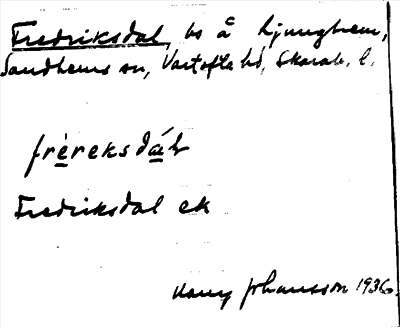 Fredriksdal, bs å Ljunghem,
Sandhems sn, Vartofta hd, Skarab. l.
frèreksdál
Fredriksdal ek
Johansson 1936.